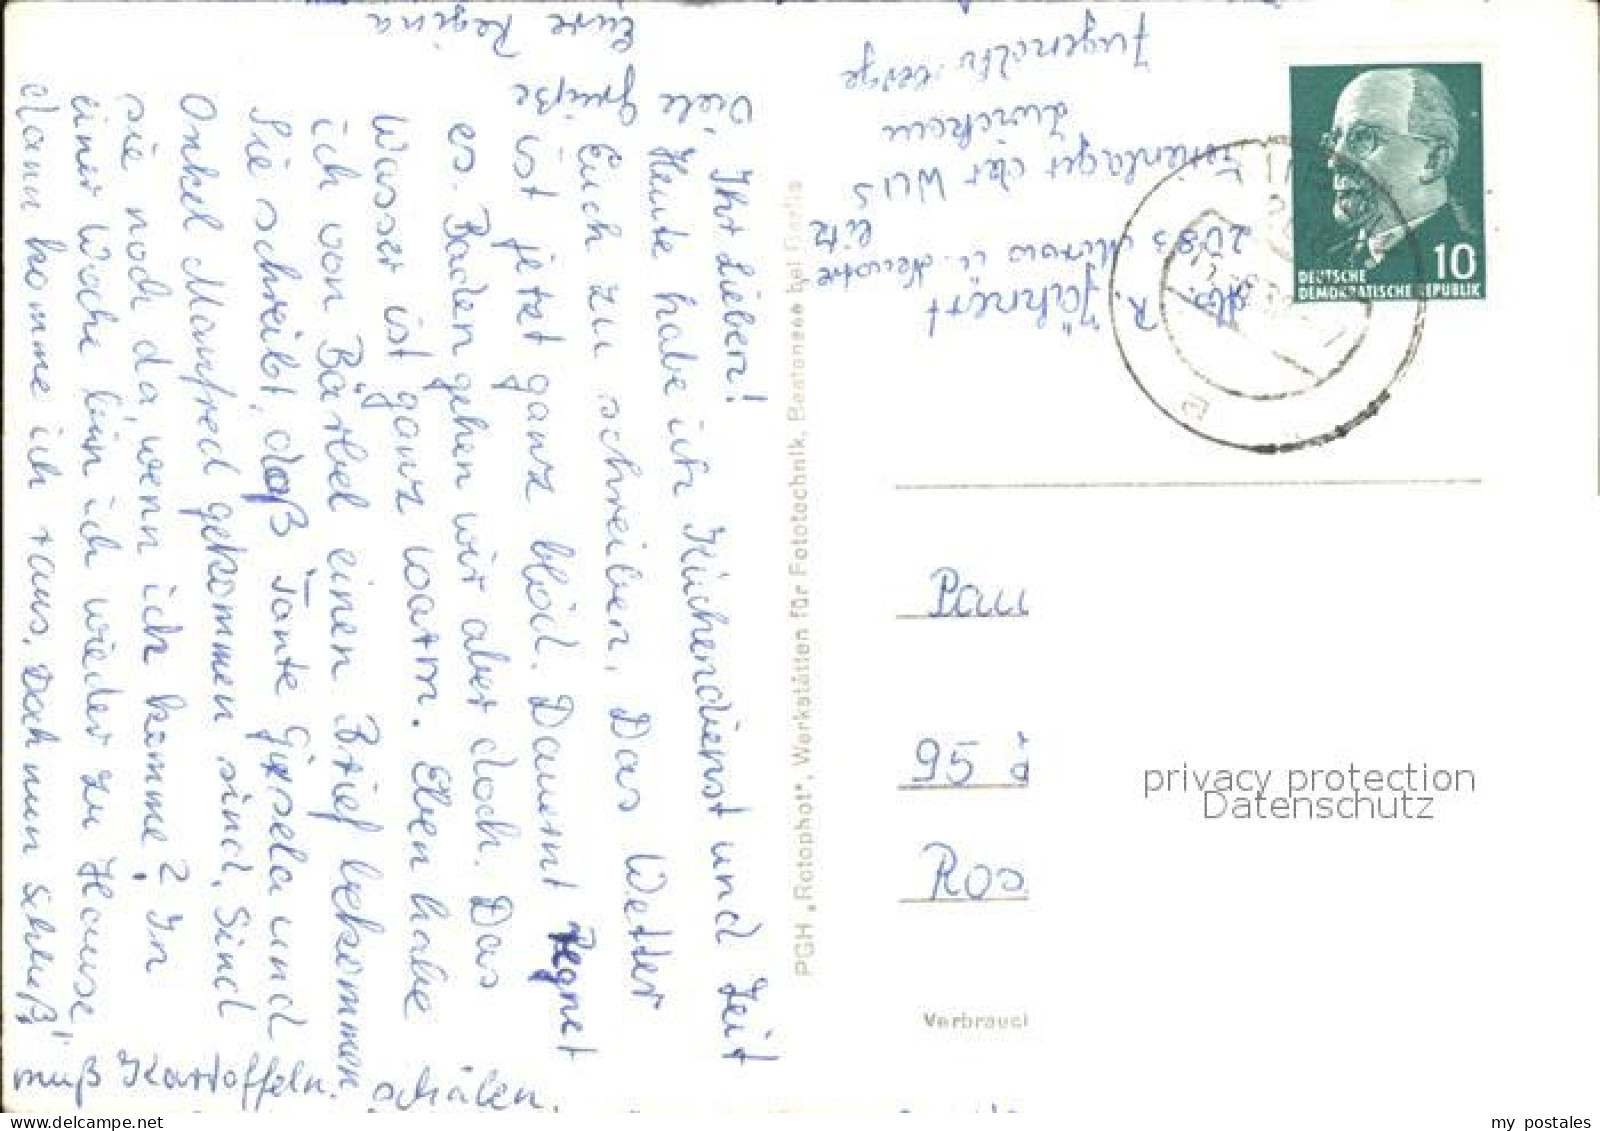 Ihr Lieben!
Heute habe ich Küchendienst und Zeit
Euch zu schreiben. Das Wetter
ist jetzt ganz blöd. Dauernt regnet
es. Baden gehen wir aber doch. Das
Wasser ist ganz warm. Eben habe
ich von Bärbel einen Brief bekommen
Sie schreibt, daß Tante Gisela und
Onkel Manfred gekommen sind. Sind
sie noch da, wenn ich komme? In
einer Woche bin ich wieder zu Hause,
dann komme ich raus. Doch nun schluß,
muß Kartoffeln schälen.
Viele Grüße
Eure Regina
PGH „Rotophot“, Werkstätten für Fototechnik, Bestensee bei Berlin
Abs. R. Jähnert
2083 Mirow ü. Neustre
litz
Ferienlager der WUS
Zwickau
10
DEUTSCHE
DEMOKRATISCHE REPUBLIK
Pau
95
Ros
Verbrauc
privacy protection
Datenschutz
my postales